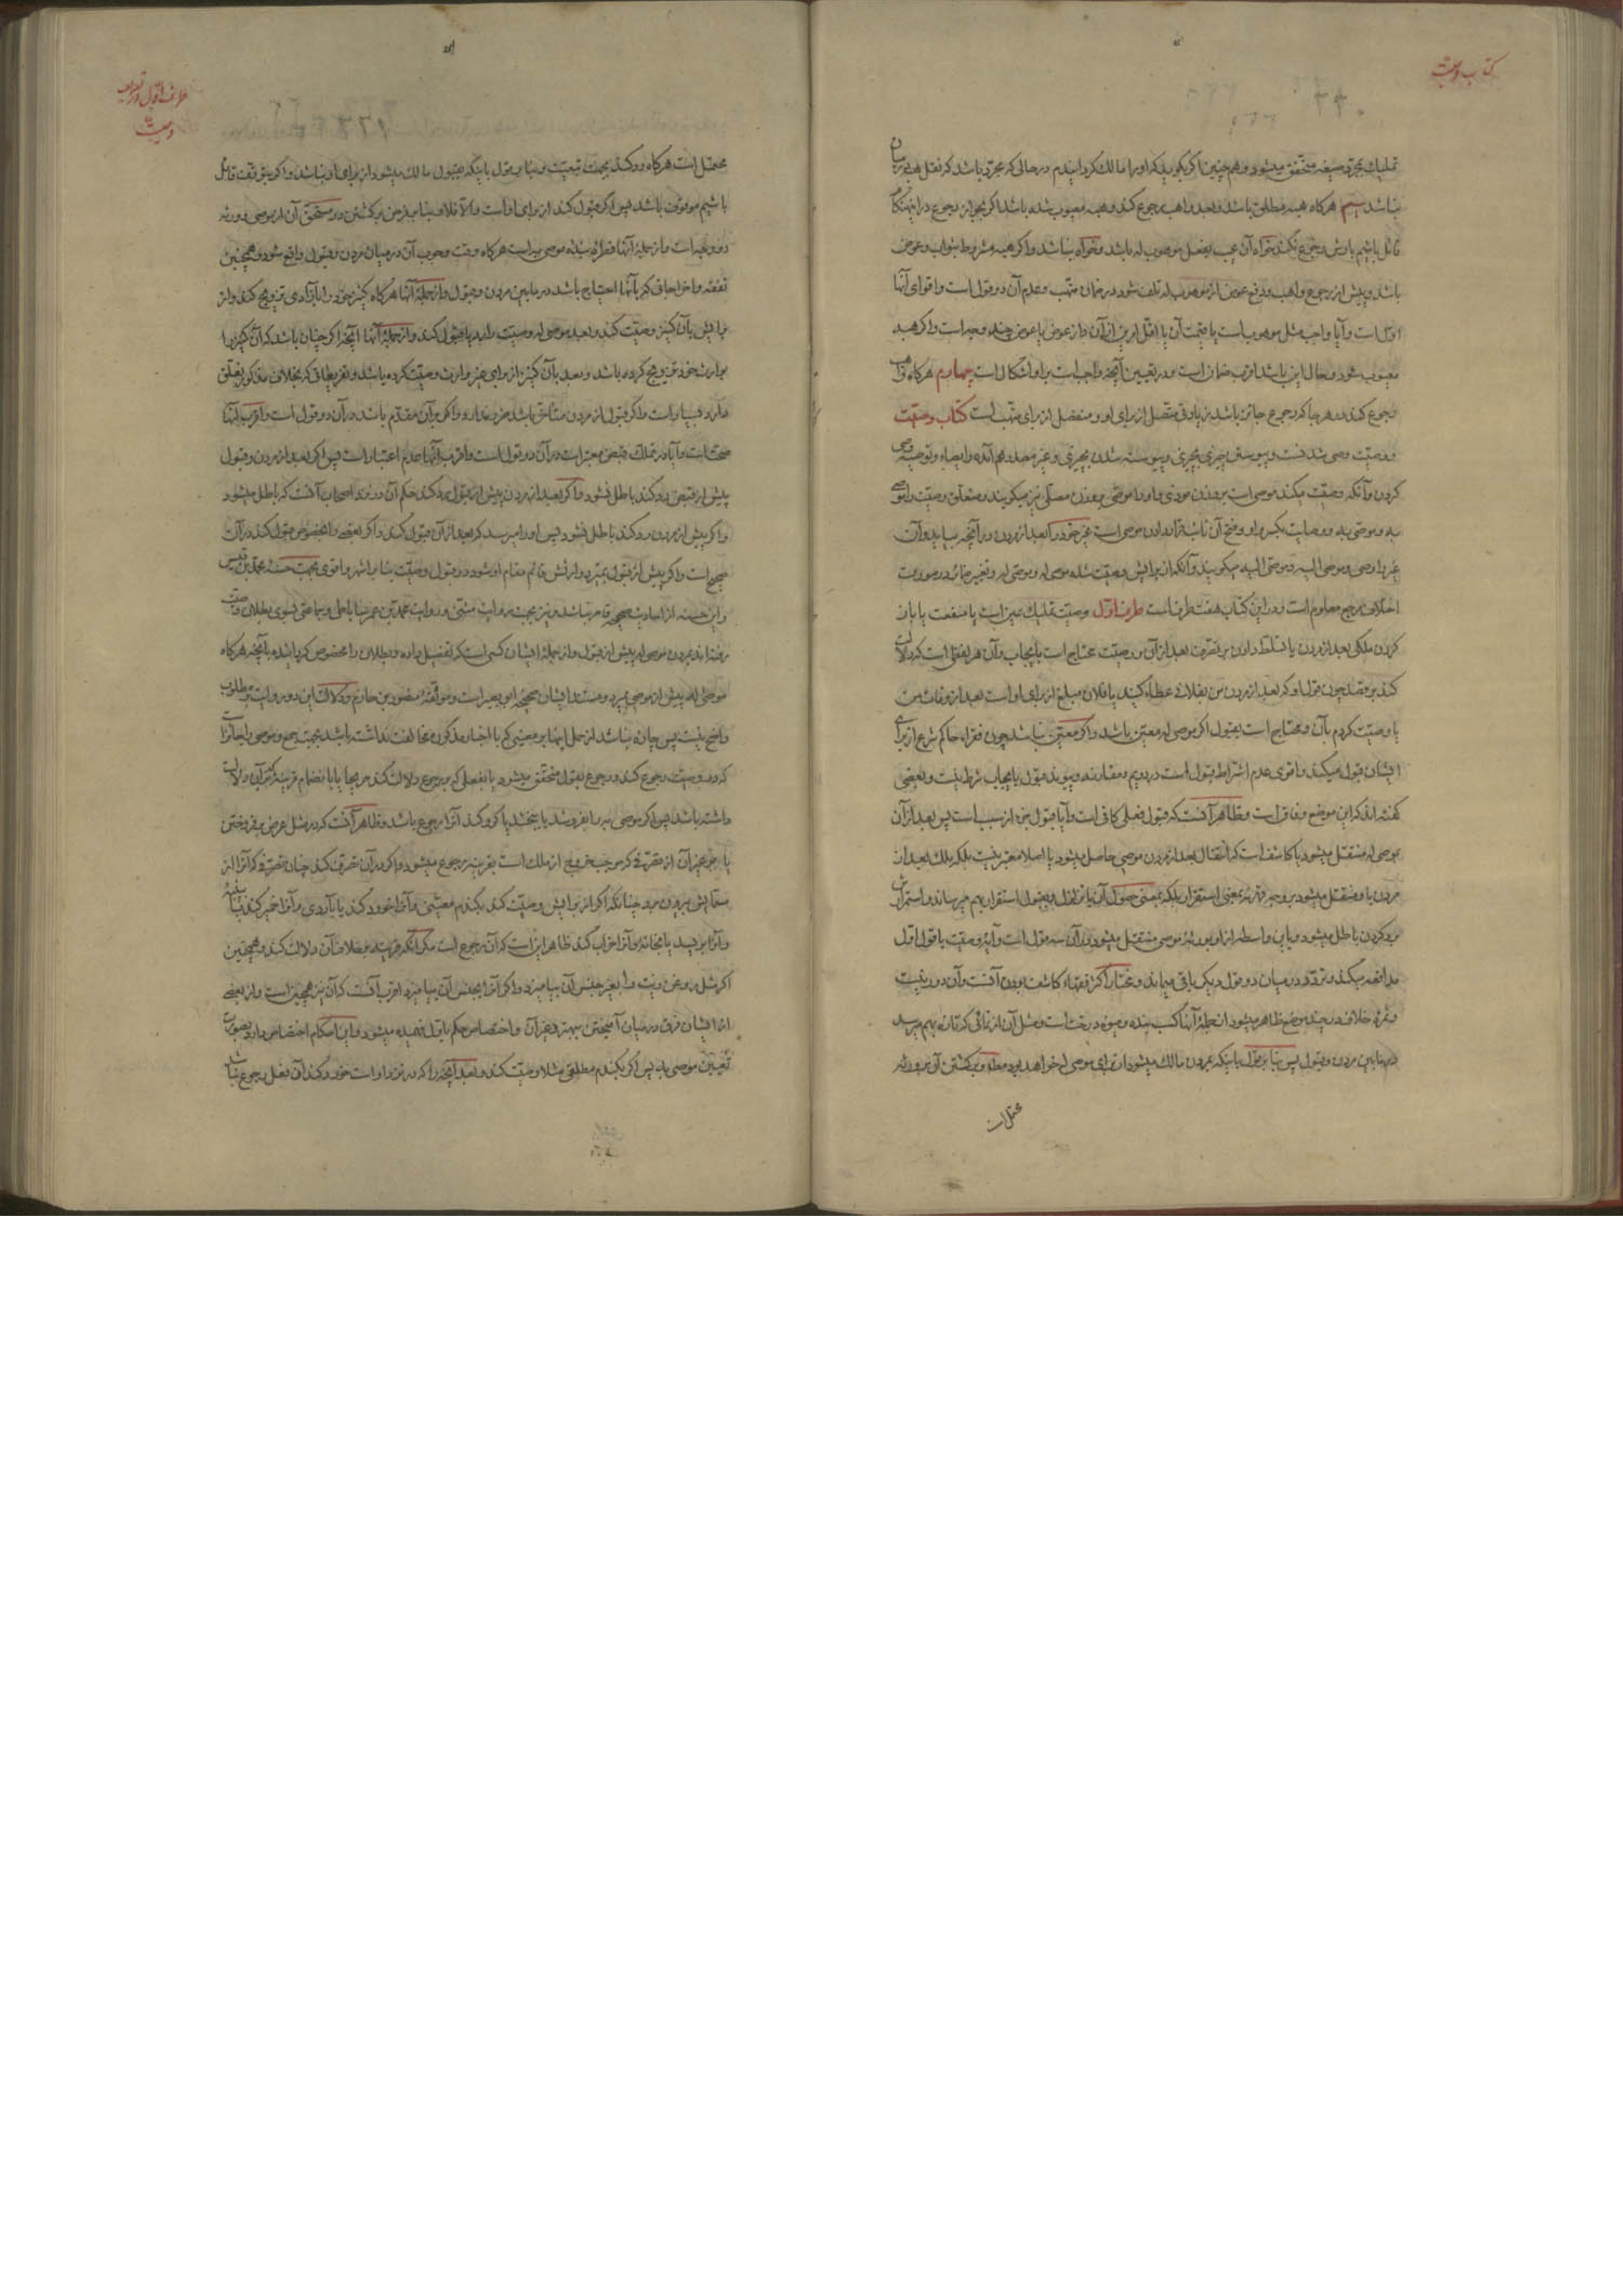 کتاب وصیت
تملیک بمجرد صیغه متحقق میشود و همچنین اگر بگوید که او را مالک گردانیدم در حالی که مجرد باشد که نقل
نباشد سیم هرگاه هبه مطلق باشد و بعد واهب رجوع کند و هبه معیوب شده باشد اگر رجوع در
قائل باشیم بارش رجوع نکند خواه آن عیب بفعل موهوب له باشد و خواه نباشد و اگر هبه مشروط بثواب و عوض
باشد و پیش از رجوع واهب و دفع عوض از موهوب له تلف شود در ضمان متهب و عدم آن دو قول است و اقوای آنها
اول است و آیا واجب مثل موهوب است یا قیمت آن یا اقل امرین از آن و از عوض یا عوض چند وجه است و اگر هبه
معیوب شود و حال این باشد اقرب ضمان است و در تعیین آنچه واجب است بر او اشکال است چهارم هرگاه واهب
رجوع کند در هر جا که رجوع جائز باشد زیادتی متصل از برای او و منفصل از برای متهب است کتاب وصیت
و وصیت وصی شدنست و پیوستن چیزی بچیزی و پیوسته شدن بچیزی و غیر مصدر هم آمده و ایصاء و توصیه وصی
کردن و آنکه وصیت میکند موصی است بر وزن موذی و او را موصّی بر وزن مصلّی نیز میگویند و متعلق وصیت را موصی
به و موصّی به و وصایت بکسر واو و فتح آن تسلط دادن موصی است غیر خود را بعد از مردن در آنچه میباید و آن
غیر را وصی و موصی الیه و موصّی الیه میگویند و آنکه از برایش وصیت شده موصی له و موصّی له و تغییر ضمائر در صورت
اختلاف مرجع معلوم است و در این کتاب هفت طرف است طرف اول وصیت تملیک عین است یا منفعت یا باز
کردن ملکی بعد از مردن یا تسلط دادن بر تصرف بعد از آن و وصیت محتاج است بایجاب و آن هر لفظی است که دلالت
کند بر قصد چون قول او که بعد از مردن من بفلانی عطاء کنید یا فلان مبلغ از برای او است بعد از وفات من
یا وصیت کردم بآن و محتاج است بقبول اگر موصی له معین باشد و اگر معین نباشد چون فقراء حاکم شرع از برای
ایشان قبول میکند و اقوی عدم اشتراط قبول است در دویم و مقارنه و پیوند قبول بایجاب شرط نیست و بعضی
گفته‌اند که این موضع وفاق است و ظاهر آنست که قبول فعلی کافی است و آیا قبول جزء از سبب است پس بعد از آن
بموصی له منتقل میشود یا کاشف است که انتقال بعد از مردن موصی حاصل میشود یا اصلا معتبر نیست بلکه ملک بعد از
مردن باو منتقل میشود بر وجه قهر نه بمعنی استقرار بلکه بمعنی حصول آن با تزلزل و بقبول استقرار بهم میرساند و استمرار
برد کردن باطل میشود و باین واسطه از او بورثه موصی منتقل میشود در آن سه قول است و آیه وصیت با قول اول
مدافعه میکند و تردد در میان دو قول دیگر باقی میماند و مختار اکثر فقهاء کاشف بودن آنست و آن دور نیست
و ثمره خلاف در چند موضع ظاهر میشود از جمله آنها کسب بنده و میوه درخت است و مثل آن از نمائی که تازه بهم میرسد
در مابین مردن و قبول پس بنابر قول باینکه بمردن مالک میشود از برای موصی له خواهد بود مطلقا و برگشتن آن بورثه
محتمل است
طرف اول در تعریف وصیت
محتمل است هرگاه رد کند بجهت تبعیت و بنابر قول باینکه بقبول مالک میشود از برای او نباشد و اگر بتوقف قائل
باشیم موقوف باشد پس اگر قبول کند از برای او است و الا فلا و بنابر در مستحق آن از موصی و ورثه
دو وجه است و از جمله آنها فطره بنده موصی به است هرگاه وقت وجوب آن در میان مردن و قبول واقع شود و همچنین
نفقه و اخراجاتی که بآنها احتیاج باشد در مابین مردن و قبول و از جمله آنها هرگاه کنیز خود را بآزادی تزویج کند و از
برایش بآن کنیز وصیت کند و بعد موصی له وصیت را رد یا قبول کند و از جمله آنها آنچه اگر چنان باشد که آن کنیز را
بوارث خود تزویج کرده باشد و بعد بآن کنیز از برای غیر وارث وصیت کرده باشد و تفریعاتی که بخلاف مذکور تعلق
دارد بسیار است و اگر قبول از مردن متأخر باشد ضرر ندارد و اگر بر آن مقدم باشد در آن دو قول است و اقرب آنها
صحت است و آیا در تملک قبض معتبر است در آن دو قول است و اقرب آنها عدم اعتبار است پس اگر بعد از مردن و قبول
پیش از قبض رد کند باطل نشود و اگر بعد از مردن پیش از قبول رد کند حکم آن در نزد اصحاب آنست که باطل میشود
و اگر پیش از مردن رد کند باطل نشود پس او را میرسد که بعد از آن قبول کند و اگر بعضی را بخصوص قبول کند در آن
صحیح است و اگر پیش از قبول بمیرد وارثش قائم مقام او شود در قبول وصیت بنابر اشهر و اقوی بجهت حسنه محمد بن قیس
و این حسنه از احادیث صحیحه قاصر نباشد و نیز بجهت روایت مثنی و روایت محمد بن عمر ساباطی و جماعتی بسوی بطلان وصیت
رفته‌اند بمردن موصی له پیش از قبول و از جمله ایشان کسی است که تفصیل داده و بطلان را مخصوص کرده باشد بآنچه هرگاه
موصی له پیش از موصی بمیرد و مستند ایشان صحیحه ابی بصیر است و موثقه منصور بن حازم و دلالت این دو روایت بر مطلوب
واضح نیست پس چاره نباشد از حمل اینها بر معنیی که با اخبار مذکوره مخالفت نداشته باشد بجهت جمع و موصی را جائز است
که در وصیت رجوع کند و رجوع بقول متحقق میشود یا بفعلی که بر رجوع دلالت کند صریحا یا بانضمام قرینه که بر آن دلالت
داشته باشد پس اگر موصی به را بفروشد یا ببخشد یا گرو کند آنرا رجوع باشد و ظاهر آنست که در مثل عرض بر فروختن
یا بر غیر آن از تصرفی که موجب خروج از ملک است بقرینه رجوع میشود و اگر در آن تصرف کند چنان تصرفی که آنرا از
مسمایش بیرون برد چنانکه اگر از برایش وصیت کند بگندم معینی و آنرا خورد کند یا بآردی و آنرا خمیر کند یا پنبه
و آنرا بریسد یا بخانه و آنرا خراب کند ظاهر این است که آن رجوع است مگر آنکه قرینه بر خلاف آن دلالت کند و همچنین
اگر مثل روغن زیت را بغیر جنس آن بیامیزد و اگر آنرا بجنس آن بیامیزد اقرب آنست که آن نیز همچنین است و از بعضی
از ایشان فرق در میان آمیختن ببهتر و غیر آن و اختصاص حکم باول فهمیده میشود و این احکام اختصاص دارد بصورت
تعیین موصی به پس اگر بگندم مطلقی مثلا وصیت کند و بعد آنچه را که در نزد او است خورد کند آن فعل رجوع نباشد